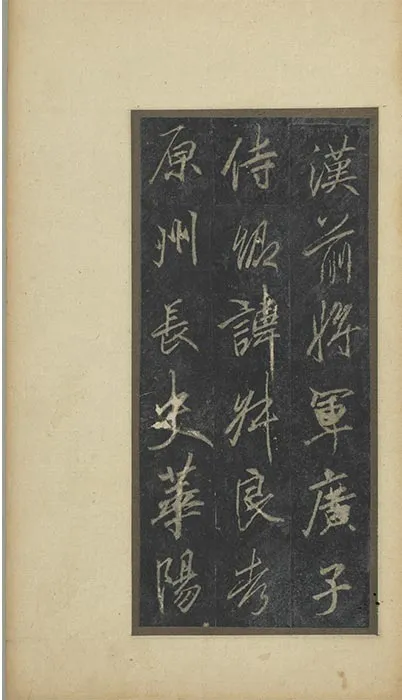 漢前將軍廣子
侍卿諱叔良考
原州長史華陽